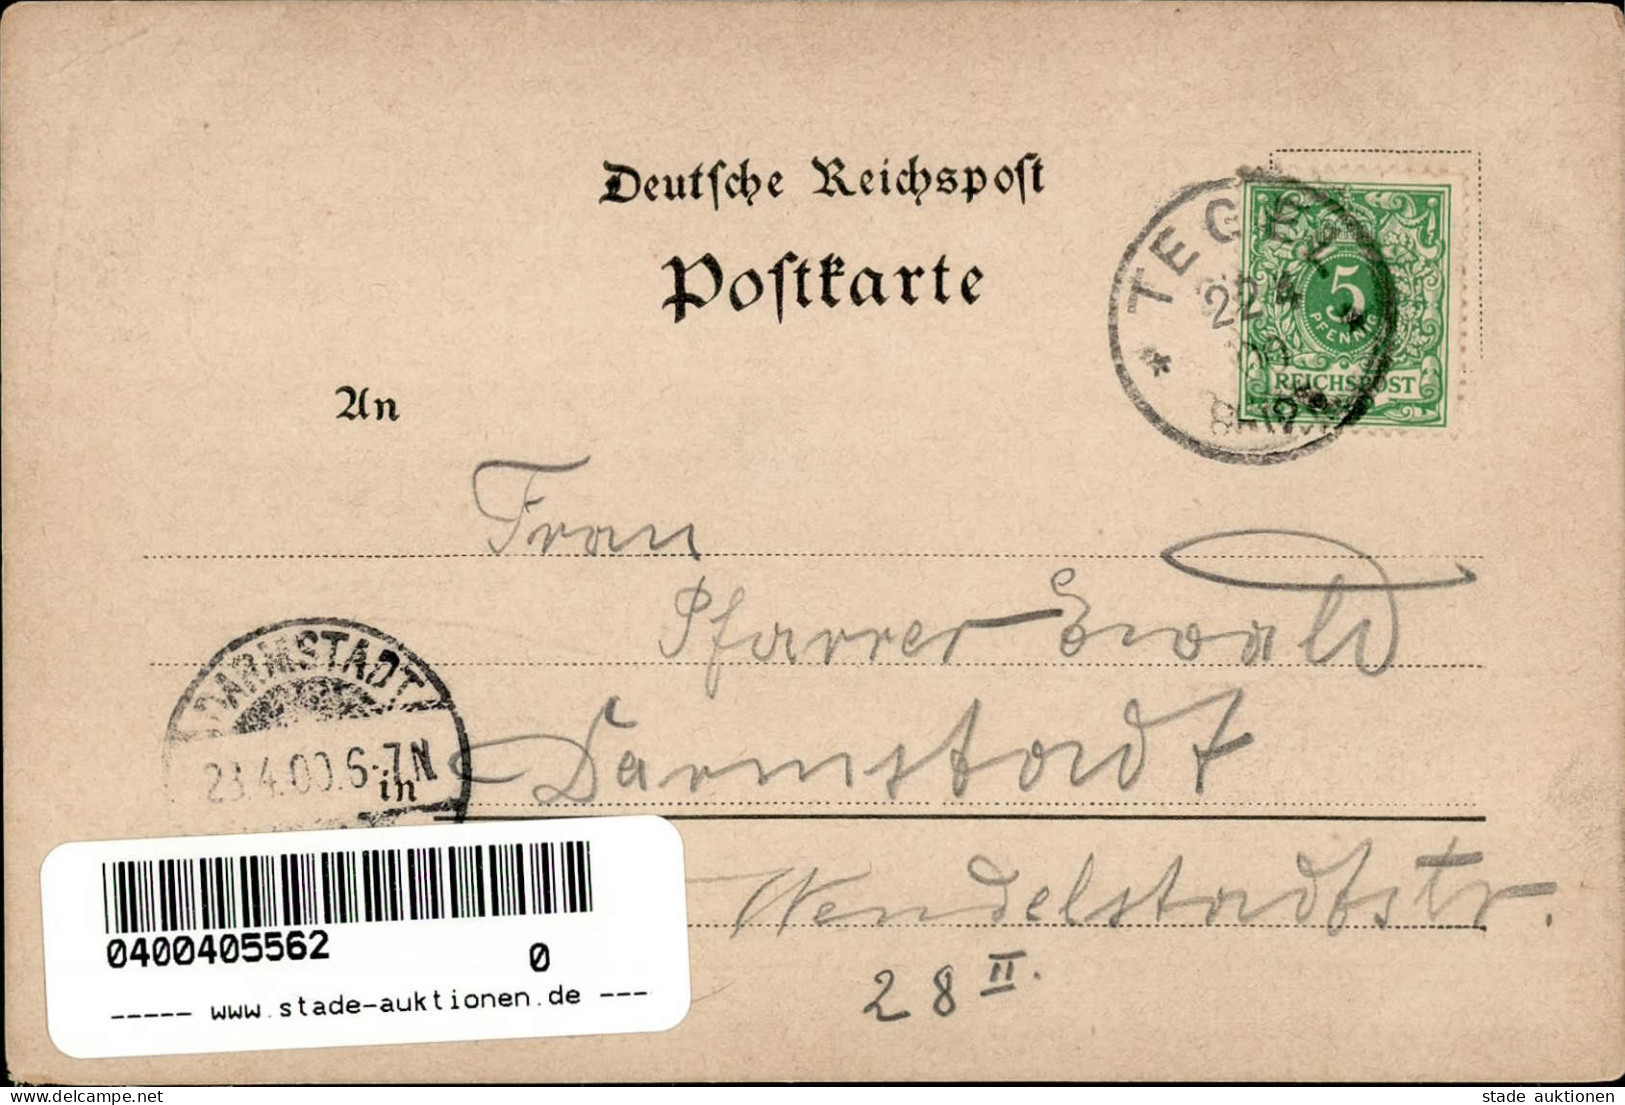 Deutsche Reichspost
Postkarte
TEGEL
22 4
00
5
PFENNIG
REICHSPOST
An
Frau
Pfarrer Ewald
DARMSTADT
23.4.00.6-7N
in
Darmstadt
Wendelstadtstr.
28 II.
0400405562
0
----- www.stade-auktionen.de ----
delcampe.net
stade auktionen